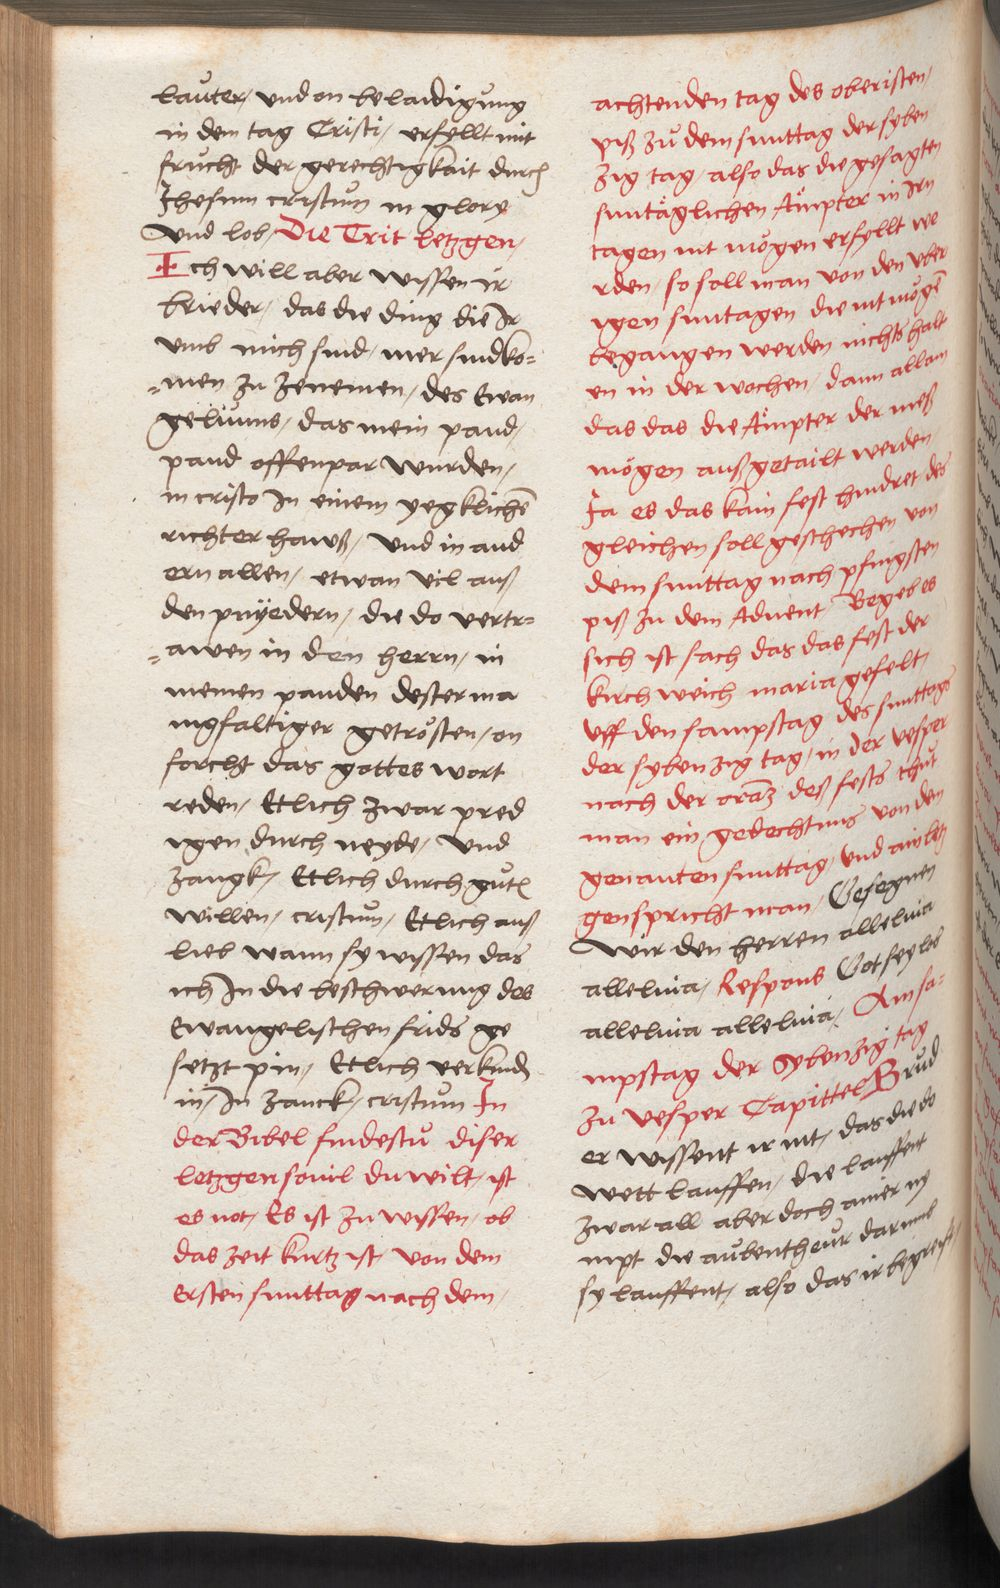 lauter, vnd on belaidigung
in dem tag Cristi, erfyllt mit
frucht der gerechtigkait durch
Jhesum cristum in glory
Vnd lob, Die Trit letzgen,
Ich will aber wissen ir
brieder, das die ding die Ir
vmb mich sind, mer sind ko=
=men zu zenemen, des Ewan
geliums, das mein pand,
pand offenpar wurden,
in cristo In einem yegklichē
richterhawß, Vnd in and
ern allen, etwan vil auß
den prüedern, die do vertr=
=awen in den herrn, in
meinen panden dester ma
nigfaltiger getrösten, on
forcht das gottes wort
reden, Ettlich zwar pred
igen durch neyde, Vnd
zangk, Ettlich durch gutē
willen, cristum, Ettlich auß
lieb wann sy wissen das
ich In die beschwerung des
Ewangelischen frids ge
setzt pin, Ettlich verkind
in, In zanck, cristum In
der Bibel findestu diser
letzgen souil du wilt, ist
es not, Es ist zu wissen, ob
das zeit kurtz ist von dem
Ersten sunttag nach dem,
achtenden tag des oberisten,
piß zu dem sunttag der syben
zig tag, also das die gesagten
suntäglichen Ämpter in Irn
tagen nit mögen erfyllt we
rden, so soll man von den vber
igen suntagen die nit mögē
begangen werden nichts halt
en in der wochen, dann allain
das das die Ämpter der meß
mögen außgetailt werden,
Ja es das kain fest hindret des
gleichen soll geschechen von
dem sunttag nach pfingsten
piß zu dem Aduent Begeb es
sich ist sach das das fest der
kirchweich maria gefelt,
Vff den sampstag des sunttags
der sybenzig tag, in der vesper
nach der oratz deß fests thut
man ein gedechtnus von dem
genanten sunttag, vnd ain letz
gen spricht man, Gesegnen
Wir den herren alleluia
alleluia, Respons Got sey lob
alleluia alleluia, Am sa=
mpstag der Sybenzig tag
zu vesper Capittel Brud
er wissent ir nit, das die do
wett lauffen, die lauffent
zwar all aber doch ainer ny
mpt die aubentheur darumb
sy lauffent, also das ir begreift,